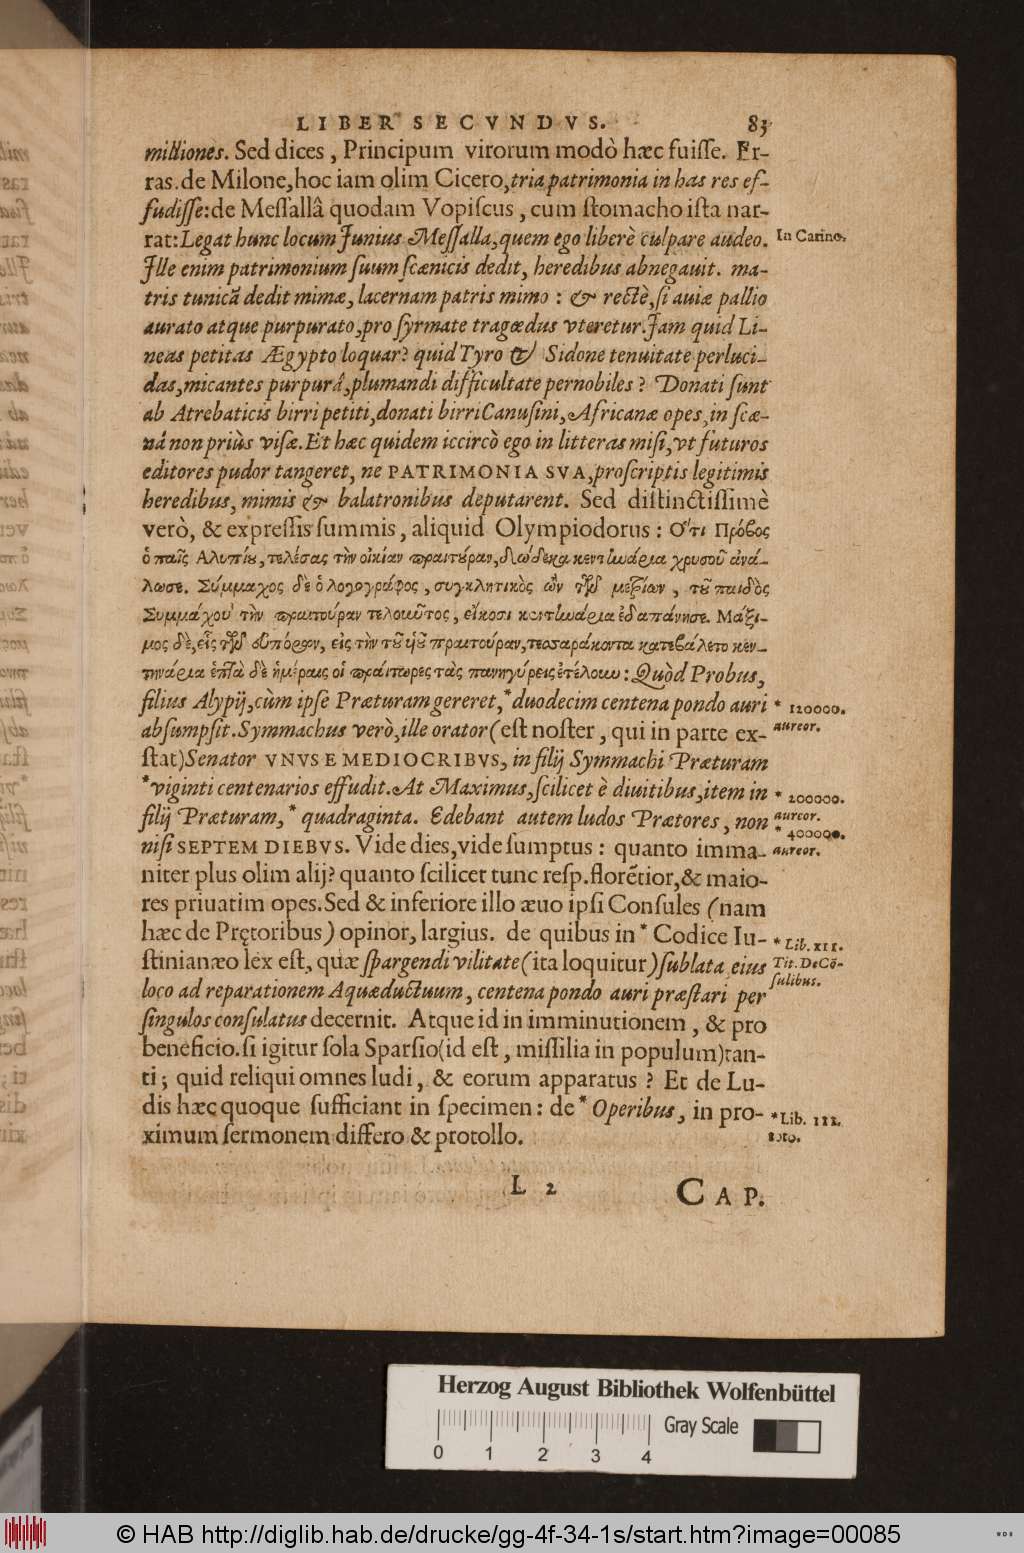 LIBER SECVNDVS. 83
milliones. Sed dices, Principum virorum modò hæc fuiſſe. Er-
ras. de Milone, hoc iam olim Cicero, tria patrimonia in has res ef-
fudiſſe: de Meſſallâ quodam Vopiſcus, cum ſtomacho iſta nar-
rat: Legat hunc locum Junius Meſſalla, quem ego liberè culpare audeo. In Carino.
Jlle enim patrimonium ſuum ſcænicis dedit, heredibus abnegauit. ma-
tris tunicã dedit mimæ, lacernam patris mimo: & rectè, ſi auiæ pallio
aurato atque purpurato, pro ſyrmate tragœdus vteretur. Jam quid Li-
neas petitas Ægypto loquar? quid Tyro & Sidone tenuitate perluci-
das, micantes purpurâ, plumandi difficultate pernobiles? Donati ſunt
ab Atrebaticis birri petiti, donati birri Canuſini, Africanæ opes, in ſcæ-
nâ non priùs viſæ. Et hæc quidem iccircò ego in litteras miſi, vt futuros
editores pudor tangeret, ne PATRIMONIA SVA, proſcriptis legitimis
heredibus, mimis & balatronibus deputarent. Sed diſtinctiſſimè
verò, & expreſſis ſummis, aliquid Olympiodorus: Ὅτι Πρόβος
ὁ παῖς Αλυπίου, τελέσας τὴν οἰκίαν πραιτούραν, δώδεκα κεντηνάρια χρυσοῦ ἀνά-
λωσε. Σύμμαχος δὲ ὁ λογογράφος, συγκλητικὸς ὢν τῶν μετρίων, τοῦ παιδὸς
Συμμάχου τὴν πραιτούραν τελοιῶτος, εἴκοσι κεντηνάρια ἐδαπάνησε. Μάξι-
μος δὲ, εἷς τῶν εὐπόρων, εἰς τὴν τοῦ υἱοῦ πραιτούραν, τεσσαράκοντα κατεβάλετο κεν-
τηνάρια ἑπτὰ δὲ ἡμέραις οἱ πραίτωρες τὰς πανηγύρεις ἐτέλουν: Quòd Probus,
filius Alypij, cùm ipſe Præturam gereret, * duodecim centena pondo auri * 120000.
abſumpſit. Symmachus verò, ille orator (eſt noſter, qui in parte ex- aureor.
ſtat) Senator VNVS E MEDIOCRIBVS, in filij Symmachi Præturam
* viginti centenarios effudit. At Maximus, ſcilicet è diuitibus, item in * 200000.
filij Præturam, * quadraginta. Edebant autem ludos Prætores, non aureor.
* 400000.
niſi SEPTEM DIEBVS. Vide dies, vide ſumptus: quanto imma- aureor.
niter plus olim alij? quanto ſcilicet tunc reſp. florẽtior, & maio-
res priuatim opes. Sed & inferiore illo æuo ipſi Conſules (nam
hæc de Prętoribus) opinor, largius. de quibus in * Codice Iu- * Lib. XII.
ſtinianæo lex eſt, quæ ſpargendi vilitate (ita loquitur) ſublata eius Tit. De Cō-
loco ad reparationem Aquæductuum, centena pondo auri præſtari per ſulibus.
ſingulos conſulatus decernit. Atque id in imminutionem, & pro
beneficio. ſi igitur ſola Sparſio (id eſt, miſſilia in populum) tan-
ti; quid reliqui omnes ludi, & eorum apparatus? Et de Lu-
dis hæc quoque ſufficiant in ſpecimen: de * Operibus, in pro- * Lib. III.
ximum ſermonem differo & protollo. toto.
L 2 CAP.
Herzog August Bibliothek Wolfenbüttel
Gray Scale
0 1 2 3 4
© HAB http://diglib.hab.de/drucke/gg-4f-34-1s/start.htm?image=00085